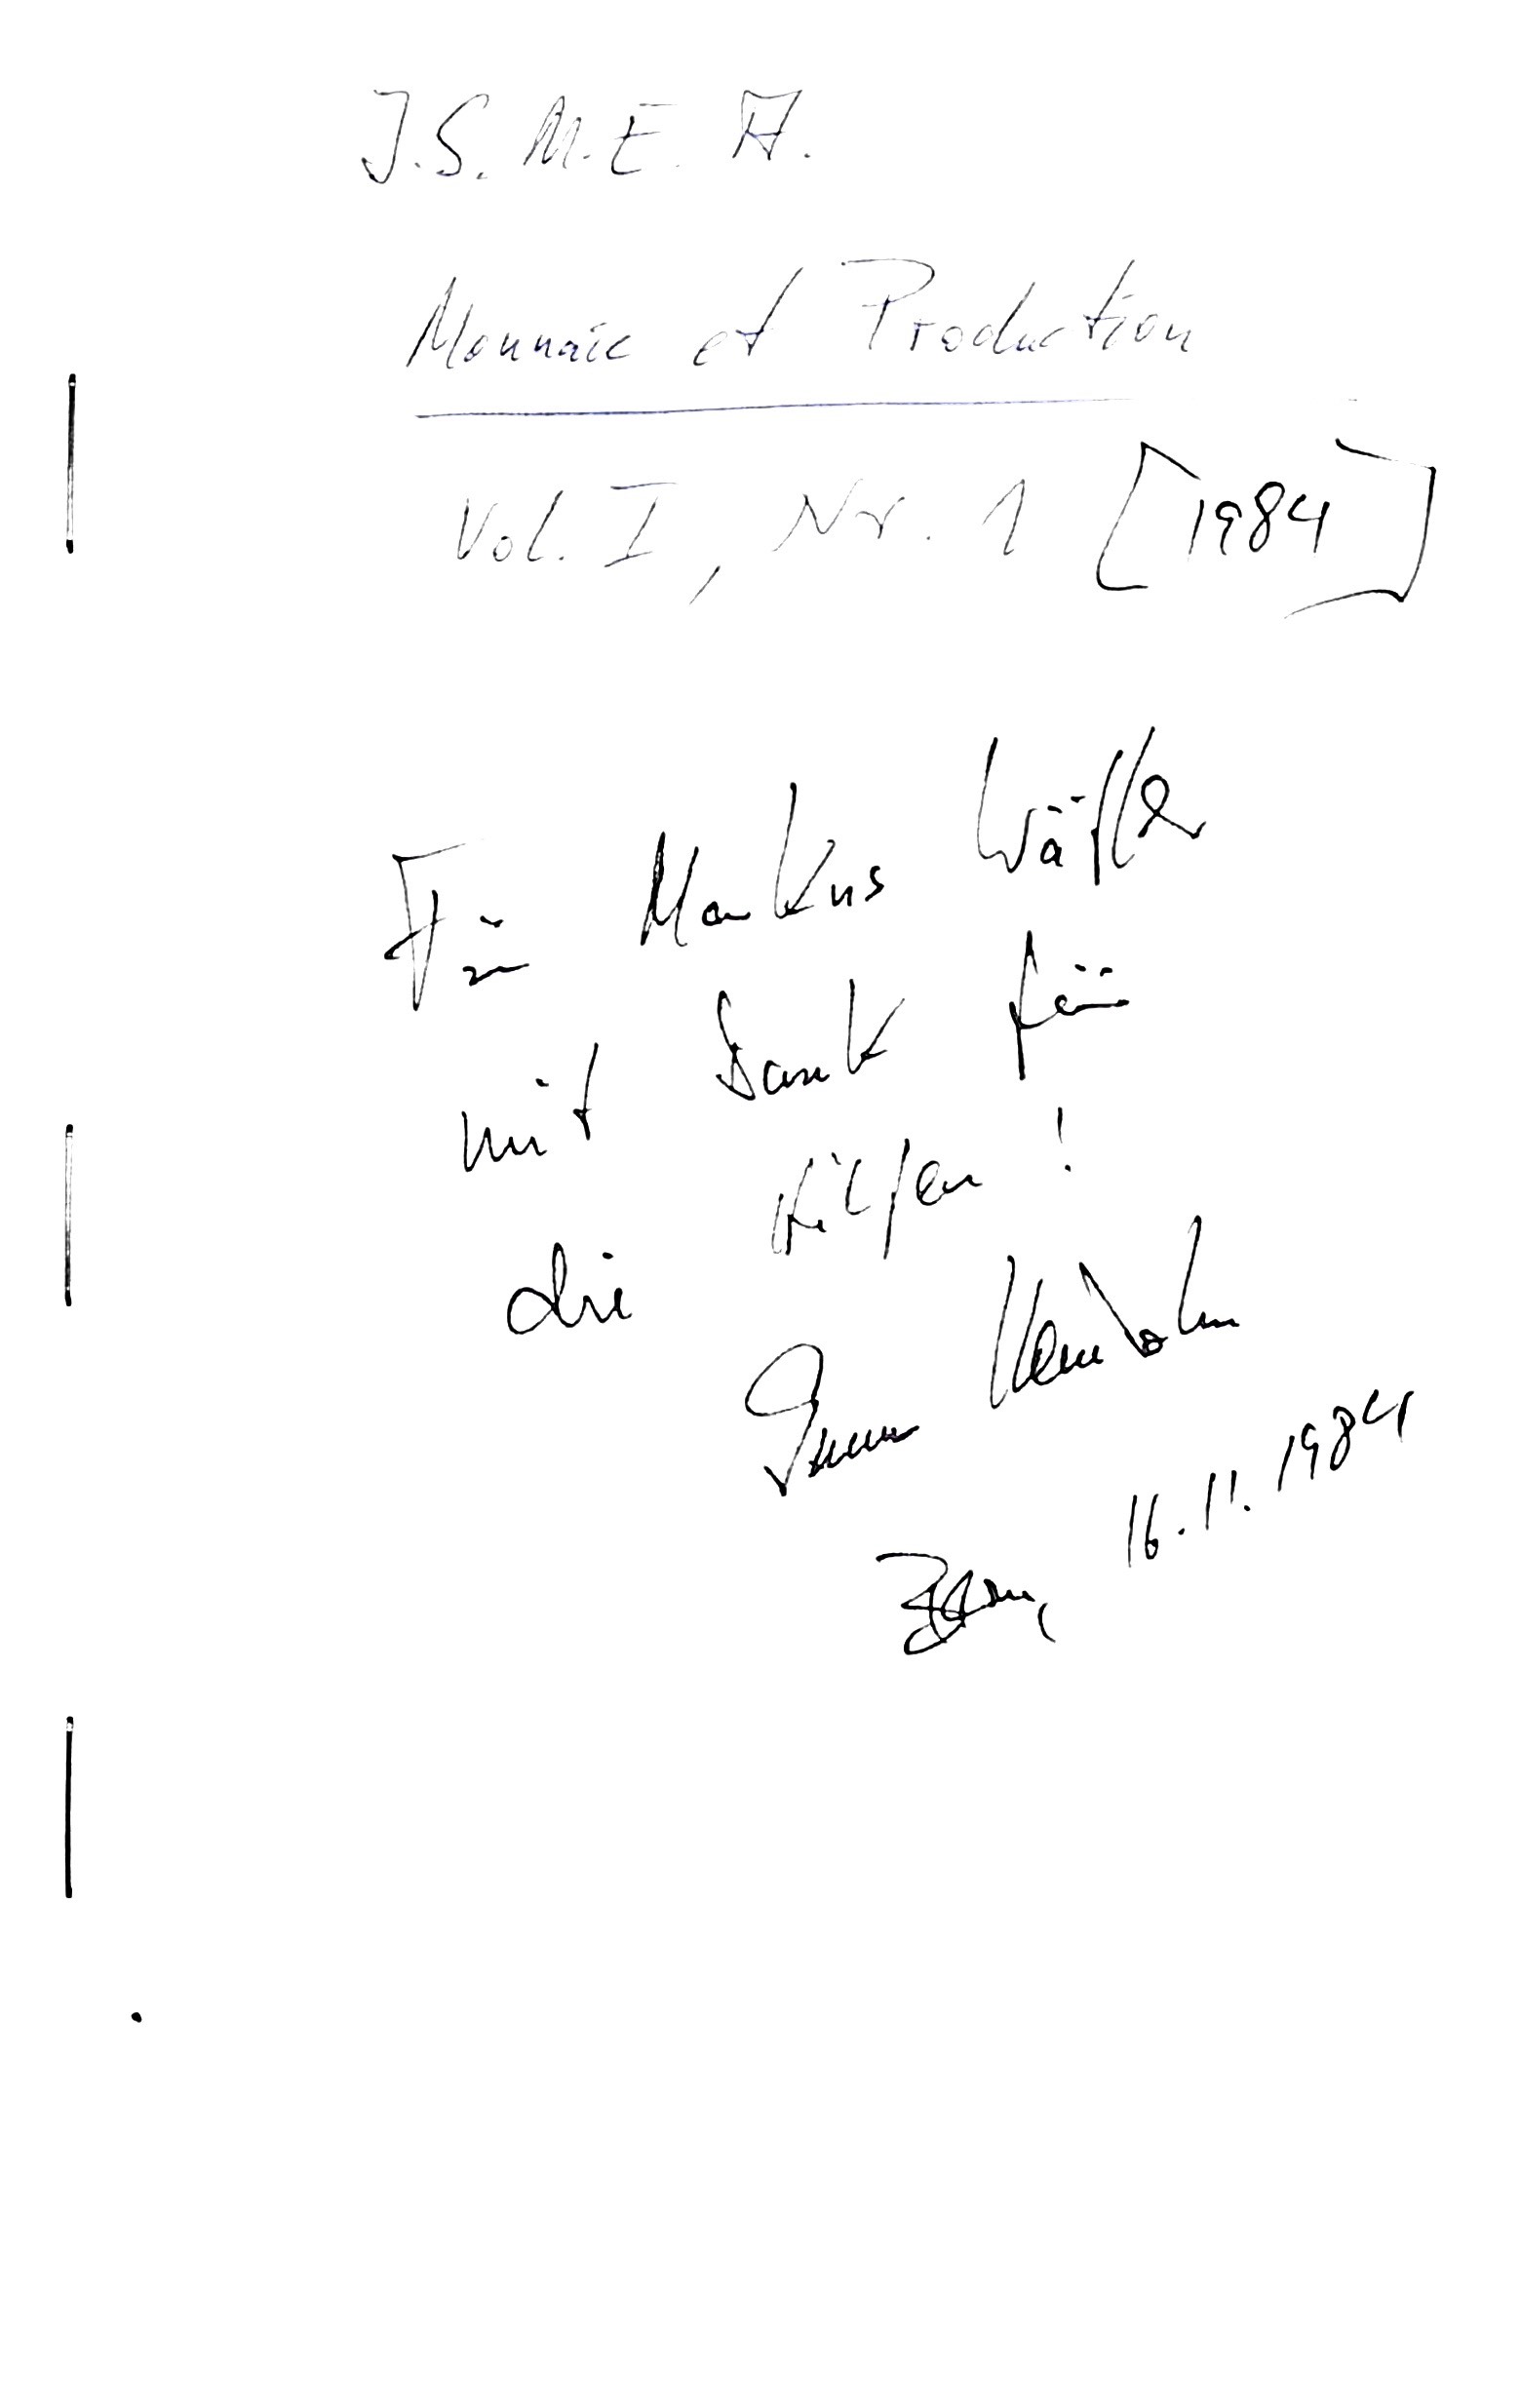 J.S.M.E.A.
Monnaie et Production
Vol. I, Nr. 1 [1984]
Für Markus Wäfler
mit Dank für
die Hilfen!
Gunnar Heinsohn
Bern, 16.11.1984